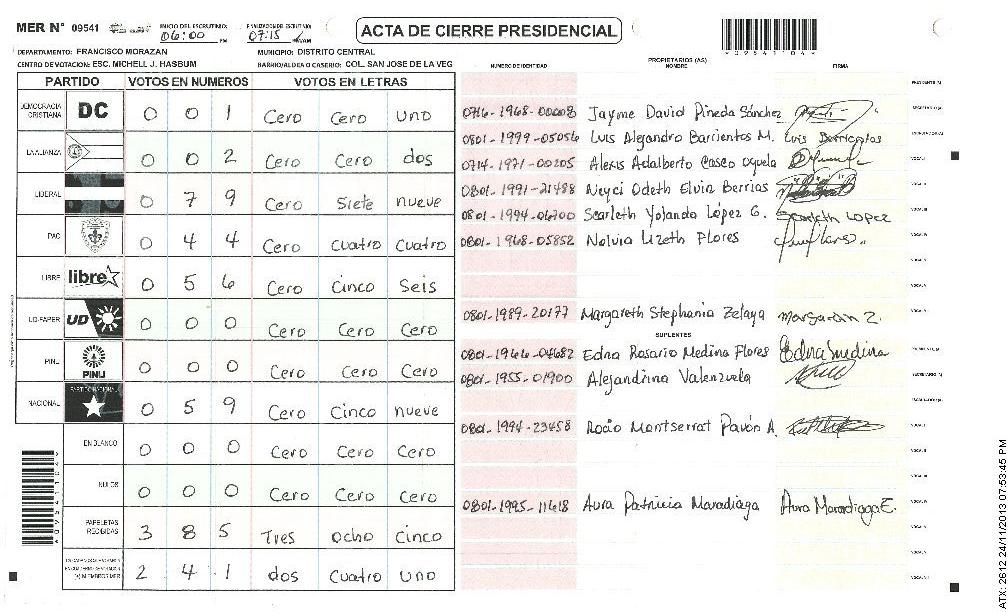 MER N° 09541
INICIO DEL ESCRUTINIO: 06:00 PM
FINALIZACION DEL ESCRUTINIO: 07:15 PM/AM
ACTA DE CIERRE PRESIDENCIAL
*09541104*
DEPARTAMENTO: FRANCISCO MORAZAN
MUNICIPIO: DISTRITO CENTRAL
CENTRO DE VOTACION: ESC. MICHELL J. HASBUM
BARRIO/ALDEA O CASERIO: COL. SAN JOSE DE LA VEG
PARTIDO VOTOS EN NUMEROS VOTOS EN LETRAS
DEMOCRACIA CRISTIANA DC 0 0 1 Cero Cero uno
LA ALIANZA 0 0 2 Cero Cero dos
LIBERAL 0 7 9 Cero Siete nueve
PAC 0 4 4 Cero cuatro cuatro
LIBRE libre 0 5 6 Cero Cinco Seis
UD-FAPER UD 0 0 0 Cero Cero Cero
PINU PINU 0 0 0 Cero Cero Cero
NACIONAL PARTIDO NACIONAL 0 5 9 Cero Cinco nueve
EN BLANCO 0 0 0 Cero Cero Cero
NULOS 0 0 0 Cero Cero Cero
PAPELETAS RECIBIDAS 3 8 5 Tres ocho cinco
(+) MIEMBROS MER 2 4 1 dos Cuatro uno
NUMERO DE IDENTIDAD
PROPIETARIOS (AS)
NOMBRE
FIRMA
0716-1968-00008 Jayme David Pineda Sánchez
0801-1979-05056 Luis Alejandro Barrientos M. Luis Barrientos
0714-1971-00205 Alexis Adalberto Casco oyuela
0801-1991-21488 Neyci Odeth Elvir Berrios
0801-1994-06700 Scarleth Yolanda López G. Scarleth Lopez
0801-1968-05852 Nolvia Lizeth Flores
0801-1989-20177 Margareth Stephania Zelaya
SUPLENTES
0801-1966-04682 Edna Rosario Medina Flores Edna Medina
0801-1955-01900 Alejandrina Valenzuela
0801-1994-23458 Rocio Montserrat Pavón A.
0801-1995-11618 Aura Patricia Maradiaga Aura Maradiaga E.
ATX: 2612 24/11/2013 07:53:45 PM